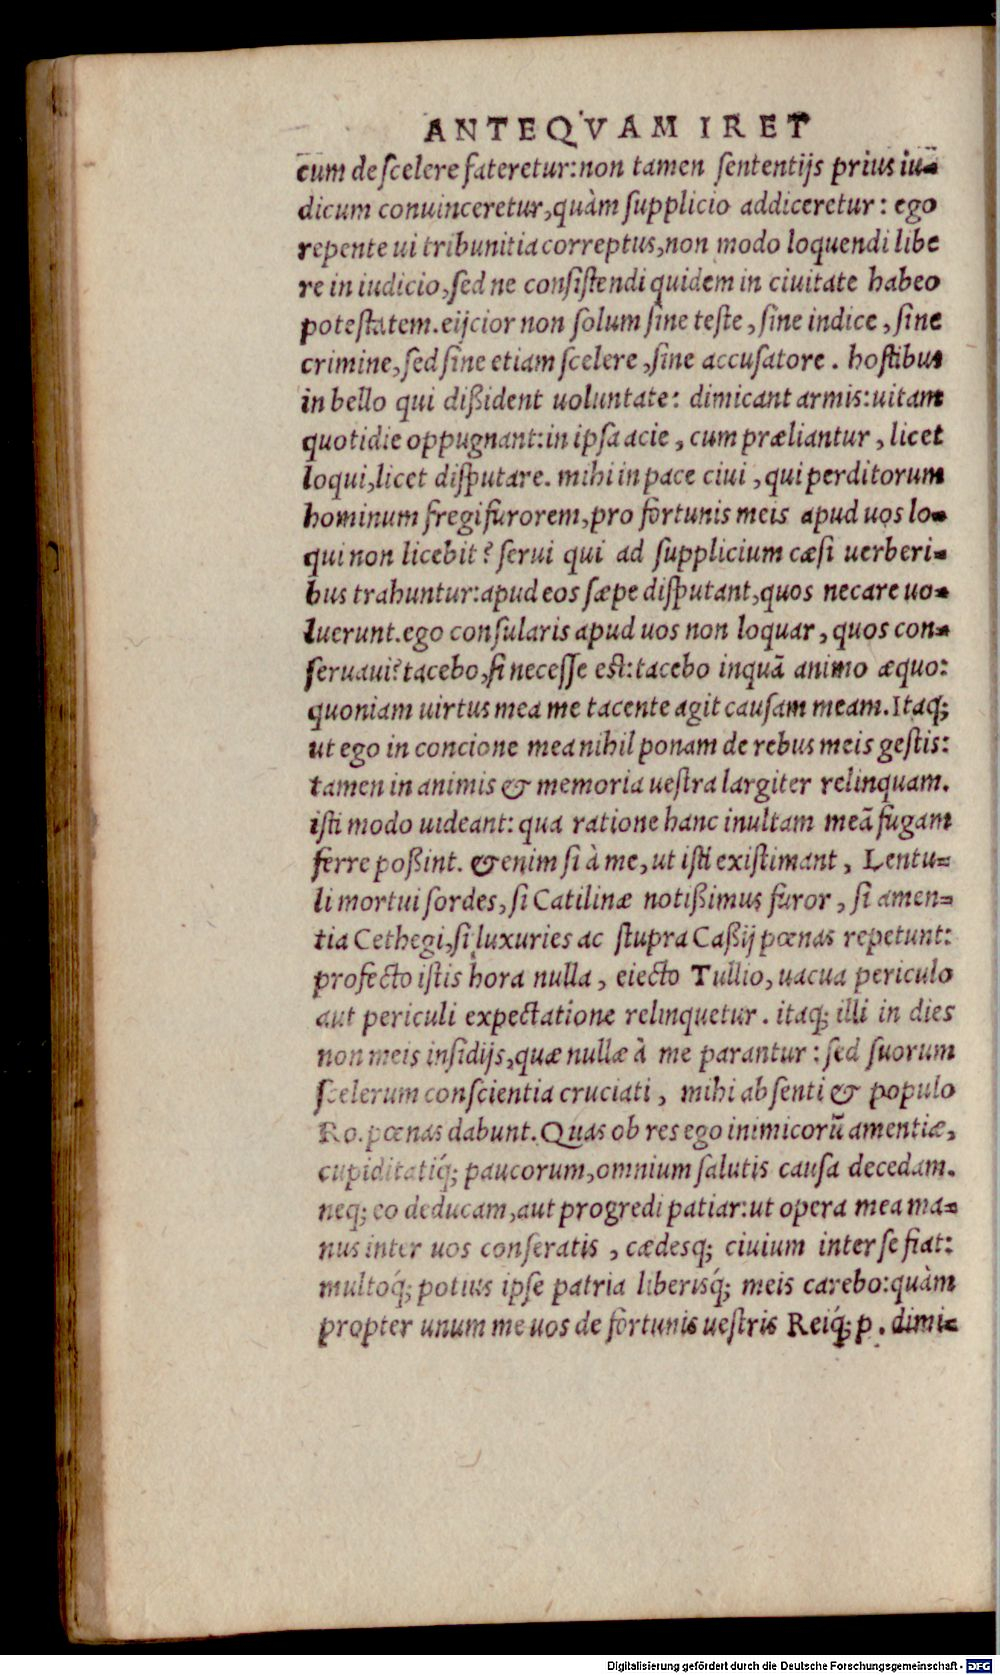 ANTEQVAM IRET
cum de scelere fateretur: non tamen sententijs prius iu-
dicum conuinceretur, quàm supplicio addiceretur: ego
repente ui tribunitia correptus, non modo loquendi libe
re in iudicio, sed ne consistendi quidem in ciuitate habeo
potestatem. eijcior non solum sine teste, sine indice, sine
crimine, sed sine etiam scelere, sine accusatore. hostibus
in bello qui dißident uoluntate: dimicant armis: uitam
quotidie oppugnant: in ipsa acie, cum præliantur, licet
loqui, licet disputare. mihi in pace ciui, qui perditorum
hominum fregi furorem, pro fortunis meis apud uos lo-
qui non licebit? serui qui ad supplicium cæsi uerberi-
bus trahuntur: apud eos sæpe disputant, quos necare uo-
luerunt. ego consularis apud uos non loquar, quos con-
seruaui? tacebo, si necesse est: tacebo inquã animo æquo:
quoniam uirtus mea me tacente agit causam meam. Itaq;
ut ego in concione mea nihil ponam de rebus meis gestis:
tamen in animis & memoria uestra largiter relinquam.
isti modo uideant: qua ratione hanc inultam meã fugam
ferre poßint. & enim si à me, ut isti existimant, Lentu-
li mortui sordes, si Catilinæ notißimus furor, si amen-
tia Cethegi, si luxuries ac stupra Caßij pœnas repetunt:
profecto istis hora nulla, eiecto Tullio, uacua periculo
aut periculi expectatione relinquetur. itaq; illi in dies
non meis insidijs, quæ nullæ à me parantur: sed suorum
scelerum conscientia cruciati, mihi absenti & populo
Ro. pœnas dabunt. Quas ob res ego inimicorũ amentiæ,
cupiditatiq́; paucorum, omnium salutis causa decedam.
neq; eo deducam, aut progredi patiar: ut opera mea ma-
nus inter uos conseratis, cædesq; ciuium inter se fiat:
multoq́; potius ipse patria liberisq́; meis carebo: quàm
propter unum me uos de fortunis uestris Reiq́; p. dimi-
Digitalisierung gefördert durch die Deutsche Forschungsgemeinschaft - DFG